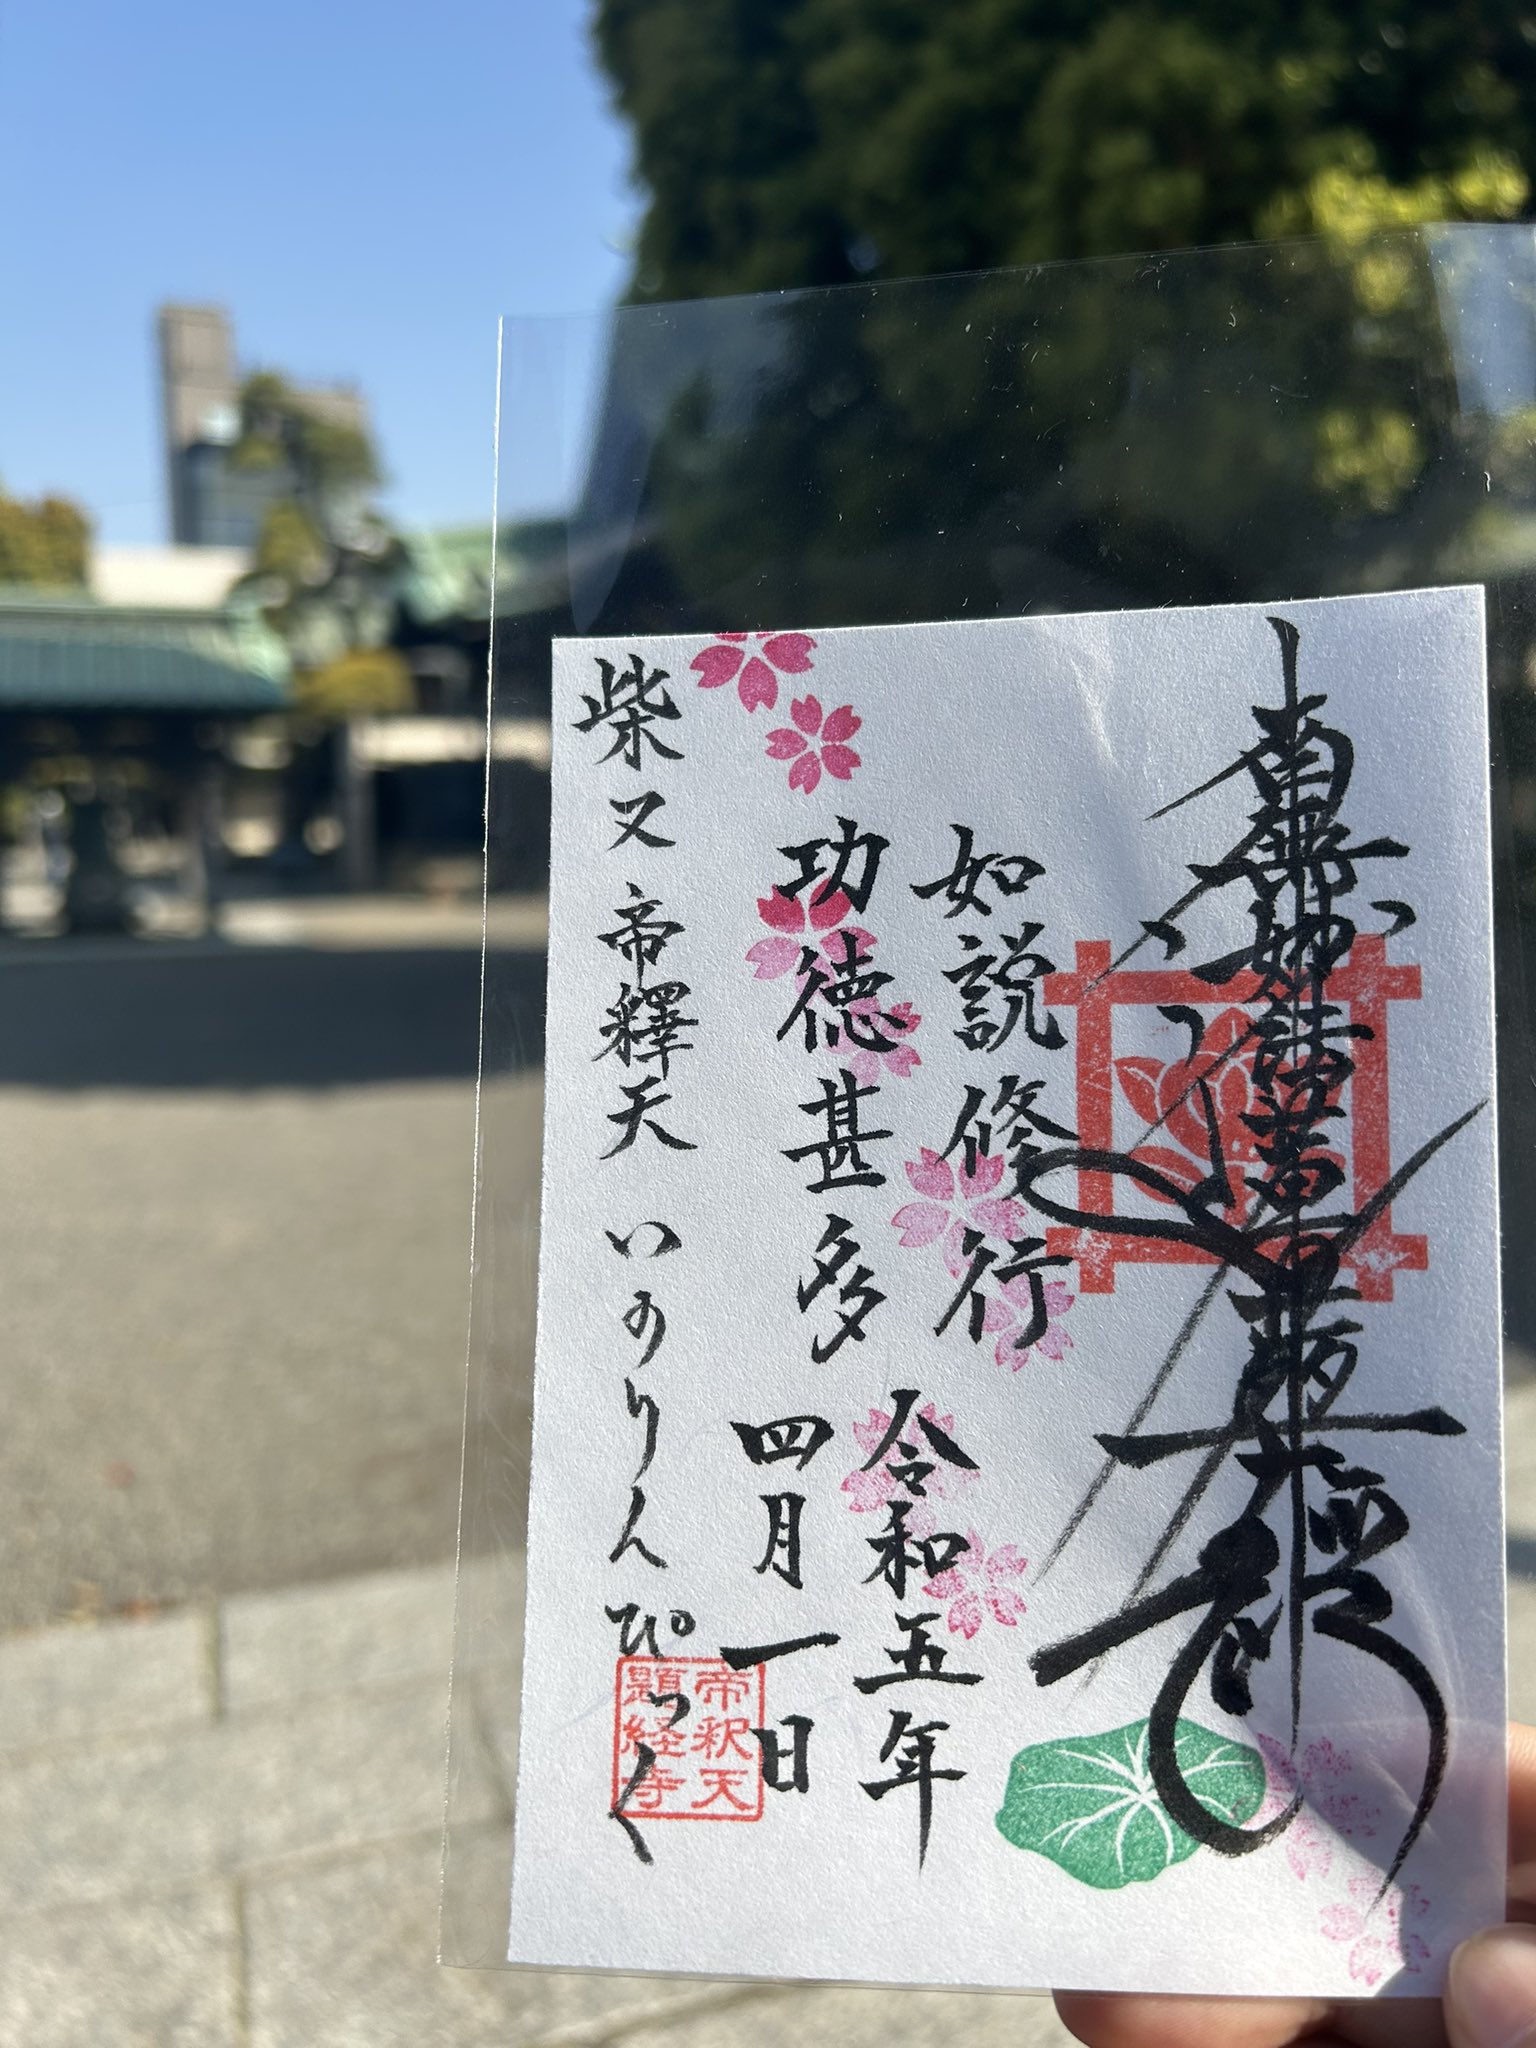 南無妙法蓮華経
如説修行
功徳甚多
令和五年
四月一日
柴又 帝釋天 いのりんぴっく
帝釈天
題経寺